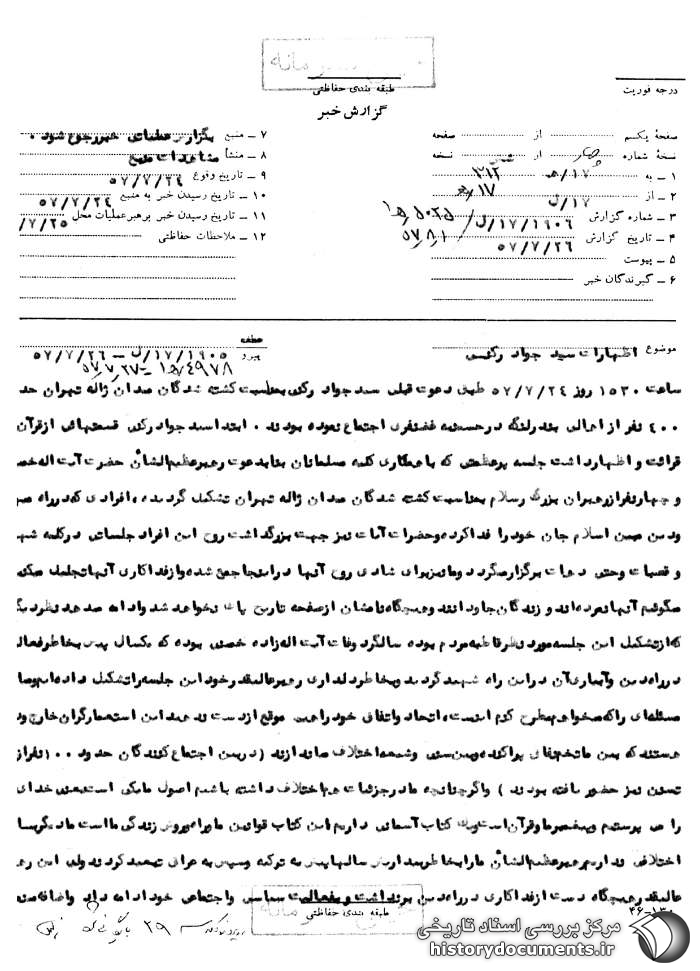 طبقه بندی حفاظتی
گزارش خبر
درجه فوریت
صفحهٔ یکم از صفحه
نسخهٔ شماره چهار از شش نسخه
۱ - به ۳۱۲
۲ - از ۱۷/ه
۳ - شماره گزارش ۱۷/۱۹۰۶/ل
۴ - تاریخ گزارش ۵۷/۷/۲۶
۵ - پیوست
۶ - گیرندگان خبر
۷ - منبع بگزارش عطفای خبر رجوع شود .
۸ - منشأ مشاهدات منبع
۹ - تاریخ وقوع ۵۷/۷/۲۴
۱۰ - تاریخ رسیدن خبر به منبع ۵۷/۷/۲۴
۱۱ - تاریخ رسیدن خبر برهبر عملیات محل ۷/۲۵/
۱۲ - ملاحظات حفاظتی
موضوع اظهارات سید جواد رکنی
عطف
پیرو ۱۷/۱۹۰۵/ل – ۵۷/۷/۲۶
ساعت ۱۵۳۰ روز ۵۷/۷/۲۴ طبق دعوت قبلی سید جواد رکنی بمناسبت کشته شدگان میدان ژاله تهران حد
۴۰۰ نفر از اهالی بندرلنگه در حسینیه اجتماع نموده بودند . ابتدا سید جواد رکنی قسمتهای از قرآن
قرائت و اظهار داشت جلسه پر عظمتی که با همکاری کلیه مسلمانان بنا بدعوت رهبر عظیم الشأن حضرت آیت اله خم
و چهار نفر از رهبران بزرگ اسلام بمناسبت کشته شدگان میدان ژاله تهران تشکیل گردیده ، افرادی که در راه میه
و دین مبین اسلام جان خود را فدا کرده و حضرات آیات نیز جهت بزرگداشت روح این افراد جلساتی در کلیه شه
و قصبات و حتی دهات برگزار میگردد و ما نیز برای شادی روح آنها در اینجا جمع شده و از فداکاری آنها تجلیل میکنیم
میگوئیم آنها نمرده اند و زندگان جاودانند و هیچگاه نامشان از صفحه تاریخ پاک نخواهد شد و ادامه میدهد نظر دیگ
که از تشکیل این جلسه مورد نظر قاطبه مردم بوده سالگرد وفات آیت اله زاده خمینی بوده که یکسال پیش بخاطر فعال
در راه دین و آبیاری آن در این راه شهید گردید و بخاطر دلداری رهبر عالیقدر خود این جلسه را تشکیل داده ایم و ما
مسئله ای را که میخواهم مطرح کنم اینست ، اتحاد و اتفاق خود را هیچ موقع از دست ندهید این استعمارگران خارج و د
هستند که بین ما تخم نفاق پراکنده و بین سنی و شیعه اختلاف میاندازند ( در بین اجتماع کنندگان حدود ۱۰۰ نفر از
تسنن نیز حضور یافته بودند ) و اگر چنانچه ما در جزئیات هم اختلاف داشته باشیم اصول ما یکی است یعنی خدای
را می پرستیم و پیغمبر ما و قرآن است و یک کتاب آسمانی داریم این کتاب قوانین ما و راه و روش زندگی ما است ما دیگر با
اختلافی نداریم رهبر عظیم الشأن ما را بخاطر بیداریش سالها پیش به ترکیه و سپس به عراق تبعید کردند ولی این ره
عالیقدر هیچگاه دست از فداکاری در راه دین بر نداشت و بفعالیت سیاسی و اجتماعی خود ادامه داد و اضافه می
طبقه بندی حفاظتی
مرکز بررسی اسناد تاریخی
historydocuments.ir